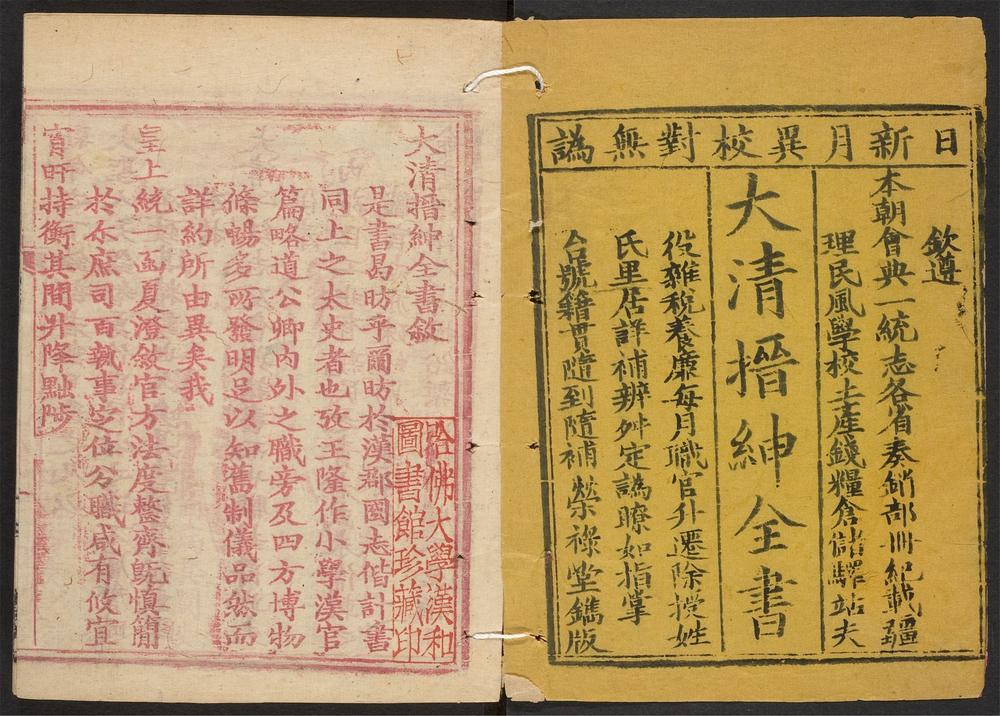 日新月異校對無譌
欽遵
本朝會典一統志各省奏銷部冊紀載疆
理民風學校土產錢糧倉儲驛站夫
大清搢紳全書
役雜稅養廉每月職官升遷除授姓
氏里居詳補辨舛定譌瞭如指掌
台號籍貫隨到隨補 榮祿堂鐫版
大清搢紳全書敘
是書曷昉乎爾昉於漢郡國志偕計書
同上之太史者也攷王隆作小學漢官
篇略道公卿內外之職旁及四方博物
條暢多所發明足以知舊制儀品然而
詳約所由異矣我
皇上統一函夏澄敘官方法度整齊旣慎簡
於尒庶司百執事定位分職咸有攸宜
宵旰持衡其間升降黜陟
哈佛大學漢和
圖書館珍藏印